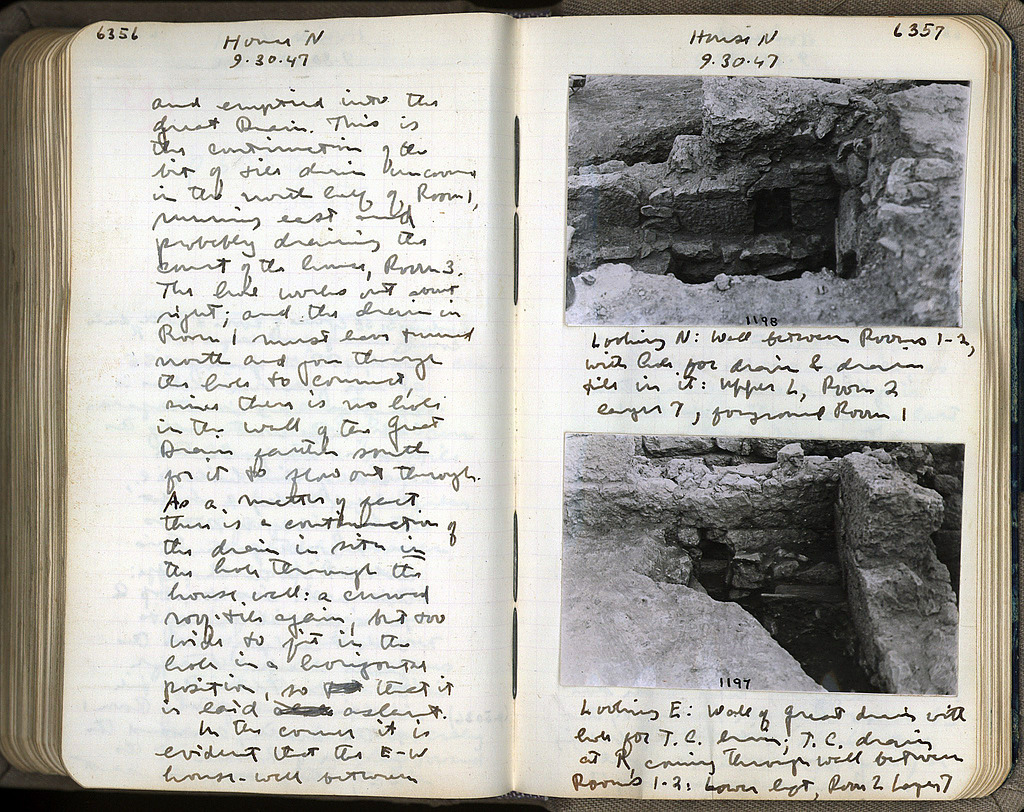 6356
House N
9.30.47
and emptied into the
great Drain. This is
the continuation of the
bit of tile drain uncovered
in the north half of Room 1,
running east and
probably draining the
court of the house, Room 3.
The line works out about
right; and the drain in
Room 1 must have turned
north and gone through
the hole to connect,
since there is no hole
in the wall of the Great
Drain farther south
for it to flow out through.
As a matter of fact
there is a continuation of
the drain in situ in
the hole through the
house wall: a curved
roof-tile again, but too
wide to fit in the
hole in a horizontal
position, so that it
is laid aslant.
In the corner it is
evident that the E-W
house-wall between
House N
6357
9.30.47
1198
Looking N: Wall between Rooms 1-2,
with hole for drain & drain
tile in it: upper L, Room 2
layer 7, foreground Room 1
1197
Looking E: Wall of great drain with
hole for T.C. drain; T.C. drain
at R, coming through wall between
Rooms 1-2: Lower left, Room 2 Layer 7